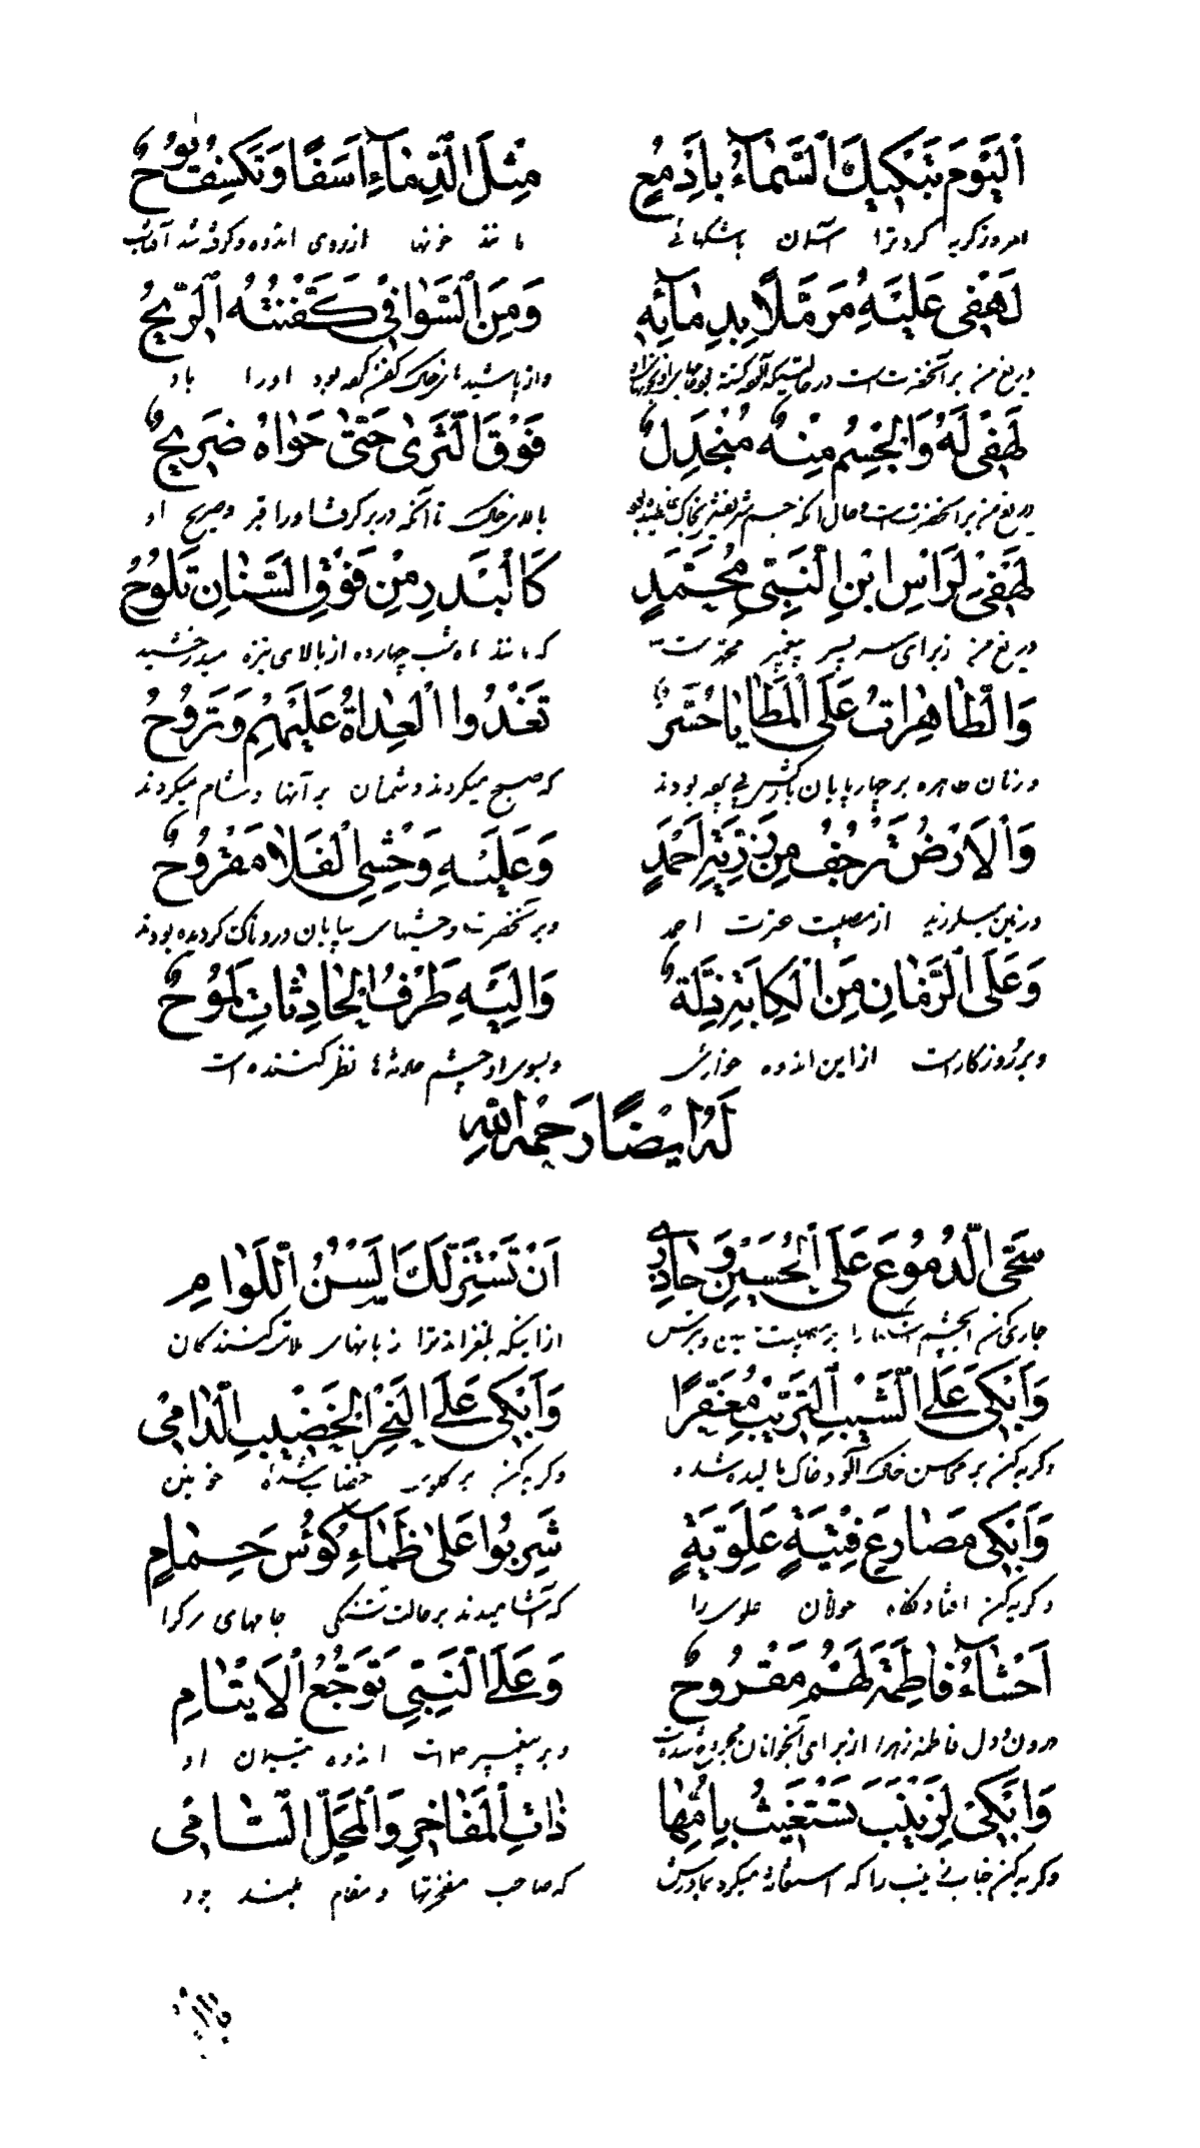 اَلْيَوْمَ تَبْكيكَ السَّمآءُ بِاَدْمُعٍ مِثْلَ الدِّمآءِ اَسَفًا وَتَكْسِفُ يُوحٌ
امروز گریه کرد ترا آسمان باشکهائی مانند خونها ازروی اندوه وگرفته شد آفتاب
لَهْفى عَلَيْهِ مُرَمَّلًا بِدِمآئِهِ وَمِنَ السَّوافى كَفَّنَتْهُ الرّيحُ
دریغ من بر آنحضرت است درحالتیکه باد
لَهْفى لَهُ وَالْجِسْمُ مِنْهُ مُنْجَدِلٌ فَوْقَ الثَّرى حَتّى حَواهُ ضَريحٌ
دریغ من بر آنحضرت است بالای خاک تا آنکه دربر گرفت اورا قبر وضریح او
لَهْفى لِرَاْسِ ابْنِ النَّبِىِّ مُحَمَّدٍ كَالْبَدْرِ مِنْ فَوْقِ السِّنانِ تَلُوحُ
دریغ من برای سر پسر پیغمبر محمد است که مانند ماه شب چهارده ازبالای نیزه میدرخشید
وَالطّاهِراتُ عَلَى الْمَطايا حُسَّرٌ تَغْدُوا الْعِداةُ عَلَيْهِمُ وَتَرُوحُ
وزنان طاهره بر چهارپایان بودند که صبح میکردند دشمنان بر آنها وشام میکردند
وَالْاَرْضُ تَرْجُفُ مِنْ رَزِيَّةِ اَحْمَدٍ وَعَلَيْهِ وَحْشِى الْفَلا مَقْرُوحٌ
وزمین میلرزید ازمصیبت عترت احمد وبر آنحضرت وحشیهای بیابان دردناک گردیده بودند
وَعَلَى الزَّمانِ مِنَ الْكِابَةِ ذِلَّةٌ وَاِلَيْهِ طَرْفُ الْحادِثاتِ لَمُوحٌ
وبر روزگار است ازاین اندوه خواری وبسوی او چشم حادثه‌ها نظر کننده است
لَهُ اَيْضًا رَحِمَهُ اللهِ
سُحِّى الدُّمُوعَ عَلَى الْحُسَيْنِ وَحاذِرى اَنْ تَسْتَزِلَّكَ اَلْسُنُ اللُّوامِ
جاری کن ای چشم اشکها را بر مصیبت حسین وبترس ازاینکه بلغزاند ترا زبانهای ملامت کنندگان
وَاَبْكى عَلَى الشَّيْبِ التَّريْبِ مُعَفَّرًا وَاَبْكى عَلَى النَّحْرِ الْخَضيبِ الدّامى
وگریه کن بر محاسن خاک آلود خاک مالیده شده وگریه کن بر گلوی خضاب شده خونین
وَاَبْكى مَصارِعَ فِتْيَةٍ عَلَوِيَّةٍ شَرِبُوا عَلى ظَمآءٍ كُوُسَ حِمامٍ
وگریه کن افتادنگاه جوانان علوی را که آشامیدند برحالت تشنگی جامهای مرک را
اَحْشآءُ فاطِمَةَ لَهُمْ مَقْرُوحٌ وَعَلَى النَّبِىِّ تَوَجُّعُ الْاَيْتامِ
درون دل فاطمه زهرا ازبرای آنجوانان مجروح شده است وبر پیغمبر است اندوه یتیمان او
وَاَبْكى لِزَيْنَبَ تَسْتَغيثُ بِاُمِّها ذاتِ الْمَفاخِرِ وَالْمَحَلِّ السّامى
وگریه کن زینب را که استغاثه میکرد بمادرش که صاحب مفخرتها ومقام بلند بود